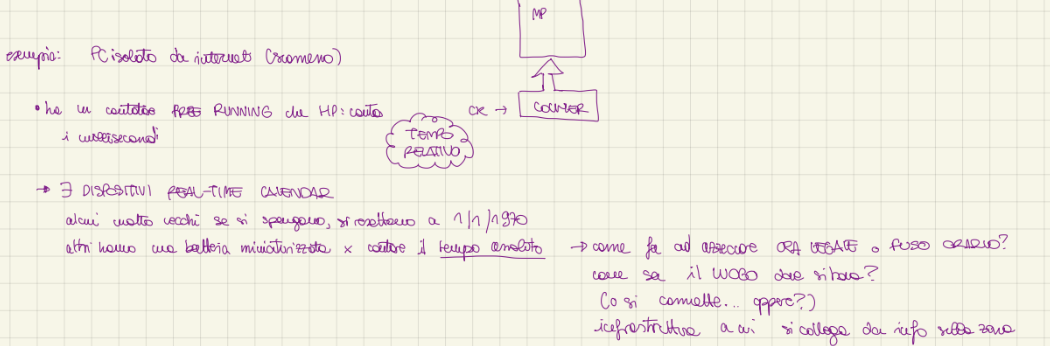 MP
esempio: PC isolato da internet (nemmeno)
• ha un contatore FREE RUNNING che HP: conta
CK → COUNTER
i millisecondi
TEMPO
RELATIVO
→ ∃ DISPOSITIVI REAL-TIME CALENDAR
alcuni molto vecchi se si spengono, si resettano a 1/1/1970
altri hanno una batteria miniaturizzata x contare il tempo assoluto → come fa ad associare ORA LEGALE o FUSO ORARIO?
come sa il LUOGO dove si trova?
(o si connette... oppure?)
infrastruttura a cui si collega da info sulla zona